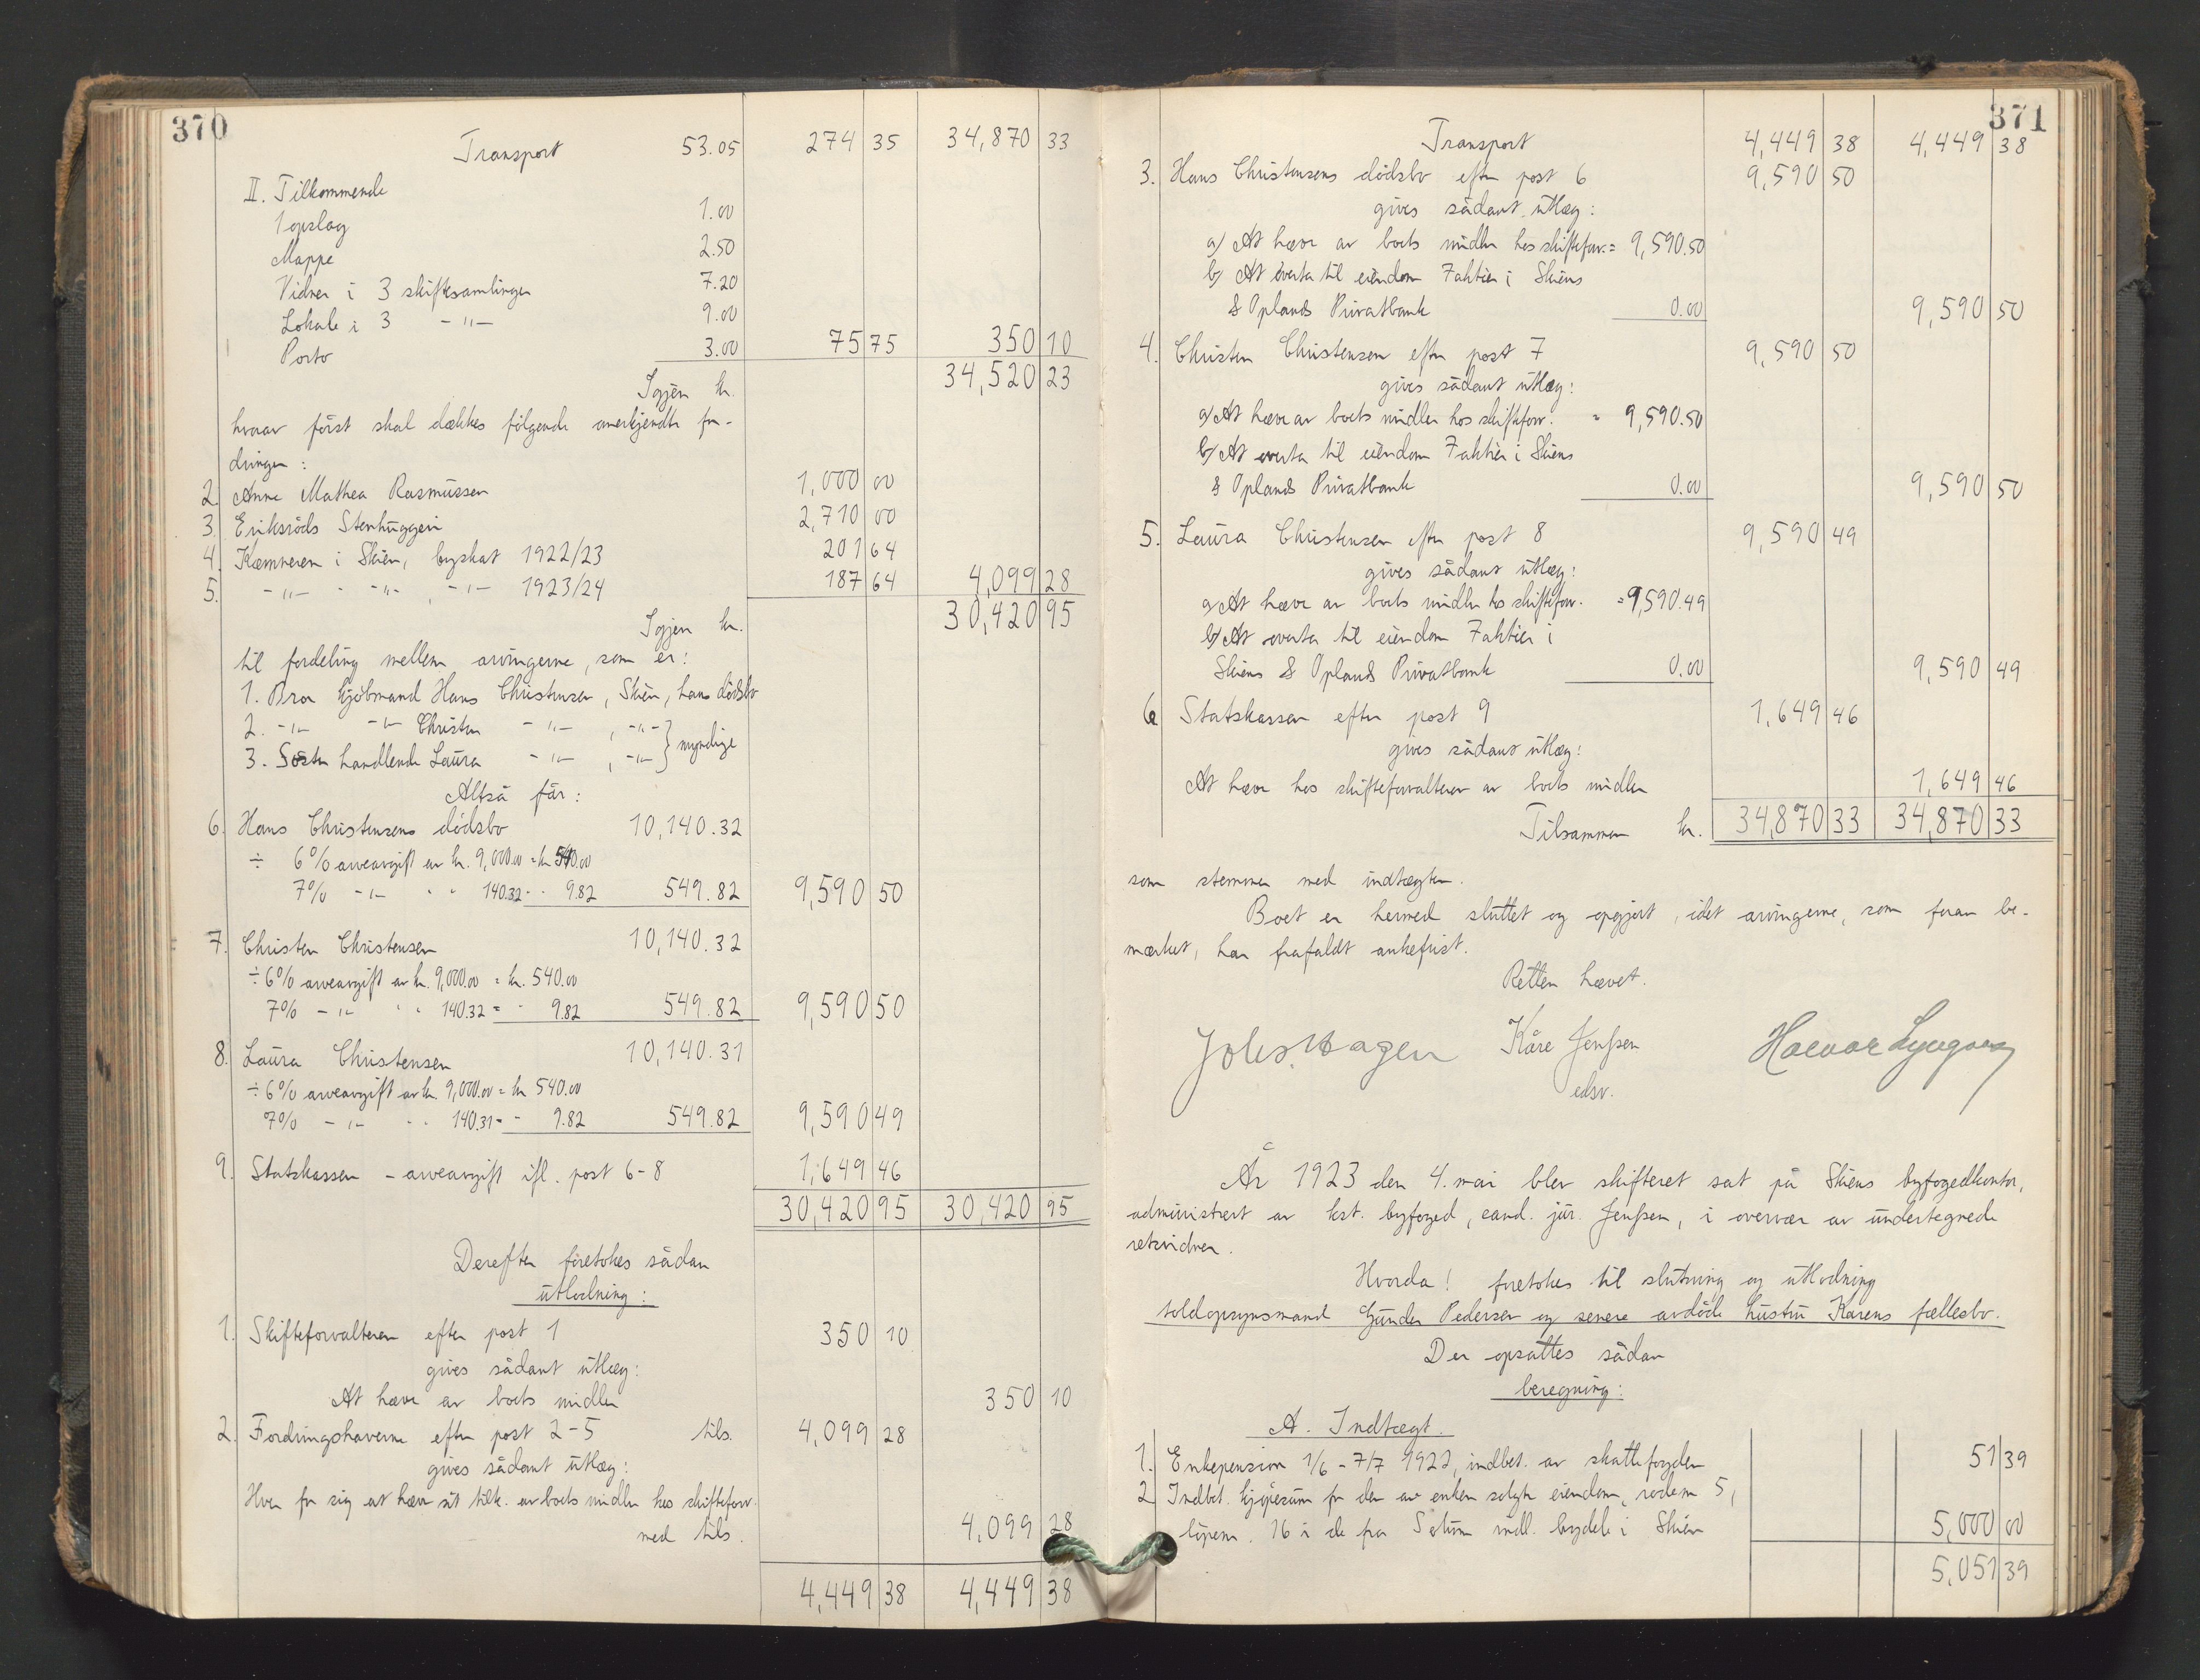 370
Transport 53.05 274 35 34,870 33
II. Tilkommende
1 opslag 1.00
Mappe 2.50
Vidner i 3 skiftesamlinger 7.20
Lokale i 3 -"- 9.00
Porto 3.00 75 75 350 10
Igjen kr. 34,520 23
hvorav først skal dækkes følgende anerkjendte for-
dringer:
2. Anne Mathea Rasmussen 1,000 00
3. Eriksröds Stenhuggeri 2,710 00
4. Kæmneren i Skien, byskat 1922/23 201 64
5. -"- - -"-, -"- 1923/24 187 64 4,099 28
Igjen kr. 30,420 95
til fordeling mellem arvingerne, som er:
1. Bror kjøbmand Hans Christensen, Skien, hans dödsbo
2. -"- -"- Christen -"-, -"- } myndige
3. Søster handlende Laura -"-, -"-
Altså får:
6. Hans Christensens dödsbo 10,140.32
÷ 6% arveavgift av kr. 9,000.00 = kr 540.00
7% -"- " " 140.32 - - 9.82 549.82 9,590 50
7. Christen Christensen 10,140.32
÷ 6% arveavgift av kr. 9,000.00 = kr. 540.00
7% -"- " " 140.32 = - 9.82 549.82 9,590 50
8. Laura Christensen 10,140.31
÷ 6% arveavgift av kr. 9,000.00 = kr 540.00
7% -"- " " 140.31 = - 9.82 549.82 9,590 49
9. Statskassen - arveavgift ifl. post 6-8 1,649 46
30,420 95 30,420 95
Derefter foretokes sådan
utlodning:
1. Skifteforvalteren efter post 1 350 10
gives sådant utlæg:
At hæve av boets midler 350 10
2. Fordringshaverne efter post 2-5 tils. 4,099 28
gives sådant utlæg:
Hver for sig at hæve sit tilk. av boets midler hos skifteforv.
med tils. 4,099 28
4,449 38 4,449 38
371
Transport 4,449 38 4,449 38
3. Hans Christensens dödsbo efter post 6 9,590 50
gives sådant utlæg:
a) At hæve av boets midler hos skifteforv. = 9,590.50
b) At overta til eiendom 7 aktier i Skiens
& Oplands Privatbank 0.00 9,590 50
4. Christen Christensen efter post 7 9,590 50
gives sådant utlæg:
a) At hæve av boets midler hos skifteforv. = 9,590.50
b) At overta til eiendom 7 aktier i Skiens
& Oplands Privatbank 0.00 9,590 50
5. Laura Christensen efter post 8 9,590 49
gives sådant utlæg:
a) At hæve av boets midler hos skifteforv. = 9,590.49
b) At overta til eiendom 7 aktier i
Skiens & Oplands Privatbank 0.00 9,590 49
6 Statskassen efter post 9 1,649 46
gives sådant utlæg:
At hæve hos skifteforvalteren av boets midler 1,649 46
Tilsammen kr. 34,870 33 34,870 33
som stemmer med indtægten.
Boet er hermed sluttet og opgjort, idet arvingerne, som foran be-
mærket, har frafaldt ankefrist.
Retten hævet.
Johs. Hagen Kåre Jenssen Halvor Lyngaas
edsv.
År 1923 den 4. mai blev skifteret sat på Skiens byfogedkontor,
administrert av kst. byfoged, cand. jur. Jenssen, i overvær av undertegnede
retsvidner.
Hvorda! foretokes til slutning og utlodning
toldopsynsmand Gunder Pedersen og senere avdöde hustru Karens fællesbo.
Der opsattes sådan
beregning:
A. Indtægt.
1. Enkepension 1/6 - 7/7 1922, indbet. av skattefogden 51 39
2 Indbet. kjøpesum for den av enken solgte eiendom, rodem 5,
löpenr. 16 i de fra Solum indl. bydele i Skien 5,000 00
5,051 39